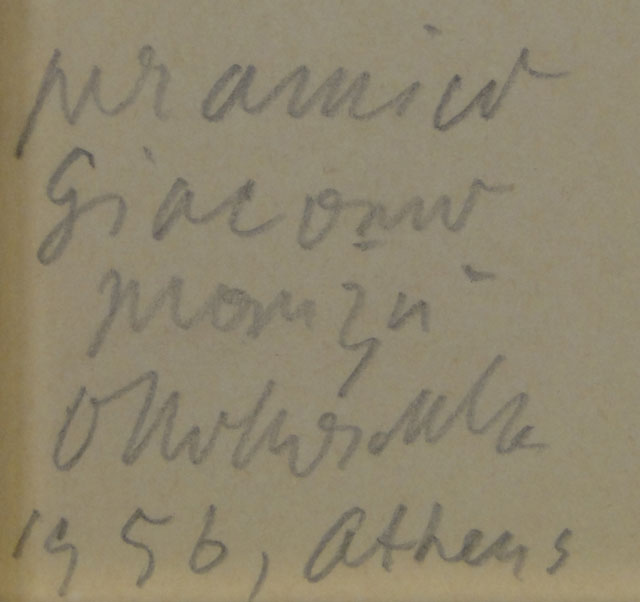 per amico
Giacomo
Manzù
OKokoschka
1956, Athens